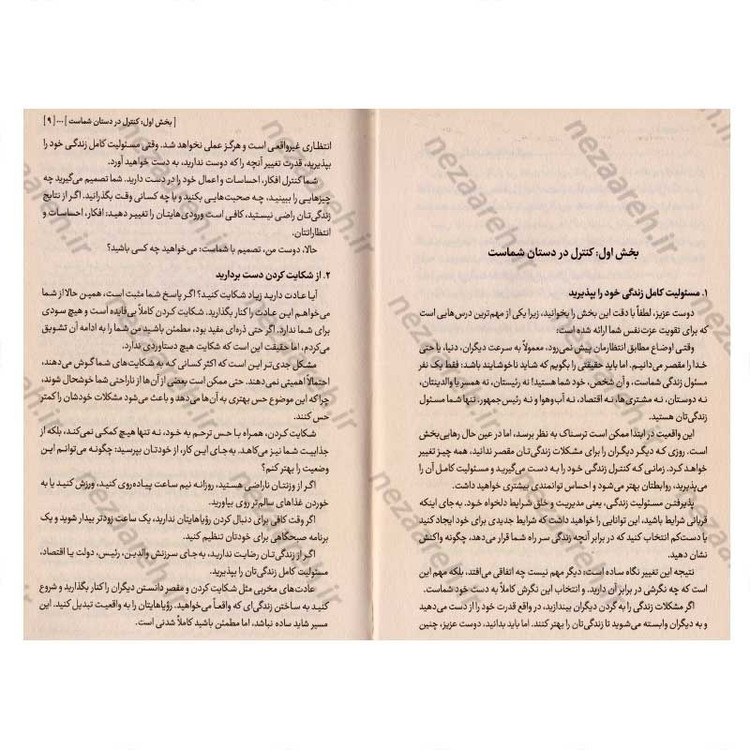 بخش اول: کنترل در دستان شماست
۱. مسئولیت کامل زندگی خود را بپذیرید
دوست عزیز، لطفاً با دقت این بخش را بخوانید، زیرا یکی از مهم‌ترین درس‌هایی است
که برای تقویت عزت‌نفس شما ارائه شده است:
وقتی اوضاع مطابق انتظارمان پیش نمی‌رود، معمولاً به سرعت دیگران، دنیا، یا حتی
خدا را مقصر می‌دانیم. اما باید حقیقتی را بگویم که شاید ناخوشایند باشد: فقط یک نفر
مسئول زندگی شماست، و آن شخص، خود شما هستید! نه رئیستان، نه همسر یا والدینتان،
نه دوستان، نه مشتری‌ها، نه اقتصاد، نه آب‌وهوا و نه رئیس‌جمهور. تنها شما مسئول
زندگی‌تان هستید.
این واقعیت در ابتدا ممکن است ترسناک به نظر برسد، اما در عین حال رهایی‌بخش
است. روزی که دیگر دیگران را برای مشکلات زندگی‌تان مقصر ندانید، همه چیز تغییر
خواهد کرد. زمانی که کنترل زندگی خود را به دست می‌گیرید و مسئولیت کامل آن را
می‌پذیرید، روابطتان بهتر می‌شود و احساس توانمندی بیشتری خواهید داشت.
پذیرفتن مسئولیت زندگی، یعنی مدیریت و خلق شرایط دلخواه خود. به جای اینکه
قربانی شرایط باشید، این توانایی را خواهید داشت که شرایط جدیدی برای خود ایجاد کنید
یا دست‌کم انتخاب کنید که در برابر آنچه زندگی سر راه شما قرار می‌دهد، چگونه واکنش
نشان دهید.
نتیجه این تغییر نگاه ساده است: دیگر مهم نیست چه اتفاقی می‌افتد، بلکه مهم این
است که چه نگرشی در برابر آن دارید. و انتخاب این نگرش کاملاً به دست خود شماست.
اگر مشکلات زندگی را به گردن دیگران بیندازید، در واقع قدرت خود را از دست می‌دهید
و به دیگران وابسته می‌شوید تا زندگی‌تان را بهتر کنند. اما باید بدانید، دوست عزیز، چنین
[ بخش اول: کنترل در دستان شماست ]...[ ۹ ]
انتظاری غیرواقعی است و هرگز عملی نخواهد شد. وقتی مسئولیت کامل زندگی خود را
بپذیرید، قدرت تغییر آنچه را که دوست ندارید، به دست خواهید آورد.
شما کنترل افکار، احساسات و اعمال خود را در دست دارید. شما تصمیم می‌گیرید چه
چیزهایی را ببینید، چه صحبت‌هایی بکنید و با چه کسانی وقت بگذرانید. اگر از نتایج
زندگی‌تان راضی نیستید، کافی است ورودی‌هایتان را تغییر دهید: افکار، احساسات و
انتظاراتتان.
حالا، دوست من، تصمیم با شماست: می‌خواهید چه کسی باشید؟
۲. از شکایت کردن دست بردارید
آیا عادت دارید زیاد شکایت کنید؟ اگر پاسخ شما مثبت است، همین حالا از شما
می‌خواهم این عادت را کنار بگذارید. شکایت کردن کاملاً بی‌فایده است و هیچ سودی
برای شما ندارد. اگر حتی ذره‌ای مفید بود، مطمئن باشید من شما را به ادامه آن تشویق
می‌کردم. اما حقیقت این است که شکایت هیچ دستاوردی ندارد.
مشکل جدی‌تر این است که اکثر کسانی که به شکایت‌های شما گوش می‌دهند،
احتمالاً اهمیتی نمی‌دهند. حتی ممکن است بعضی از آن‌ها از ناراحتی شما خوشحال شوند،
چراکه این موضوع حس بهتری به آن‌ها می‌دهد و باعث می‌شود مشکلات خودشان را کمتر
حس کنند.
شکایت کردن، همراه با حس ترحم به خود، نه تنها هیچ کمکی نمی‌کند، بلکه از
جذابیت شما نیز می‌کاهد. به جای این کار، از خودتان بپرسید: چگونه می‌توانم این
وضعیت را بهتر کنم؟
اگر از وزنتان ناراضی هستید، روزانه نیم ساعت پیاده‌روی کنید، ورزش کنید یا به
خوردن غذاهای سالم‌تر روی بیاورید.
اگر وقت کافی برای دنبال کردن رؤیاهایتان ندارید، یک ساعت زودتر بیدار شوید و یک
برنامه صبحگاهی برای خودتان تنظیم کنید.
اگر از زندگی‌تان رضایت ندارید، به جای سرزنش والدین، رئیس، دولت یا اقتصاد،
مسئولیت کامل زندگی‌تان را بپذیرید.
عادت‌های مخربی مثل شکایت کردن و مقصر دانستن دیگران را کنار بگذارید و شروع
کنید به ساختن زندگی‌ای که واقعاً می‌خواهید. رؤیاهایتان را به واقعیت تبدیل کنید. این
مسیر شاید ساده نباشد، اما مطمئن باشید کاملاً شدنی است.
nezaareh.ir
nezaareh.ir
nezaareh.ir
nezaareh.ir
nezaareh.ir
nezaareh.ir
nezaareh.ir
nezaareh.ir
nezaareh.ir